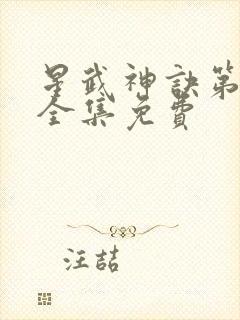 星武神訣第
全集免費
汪喆